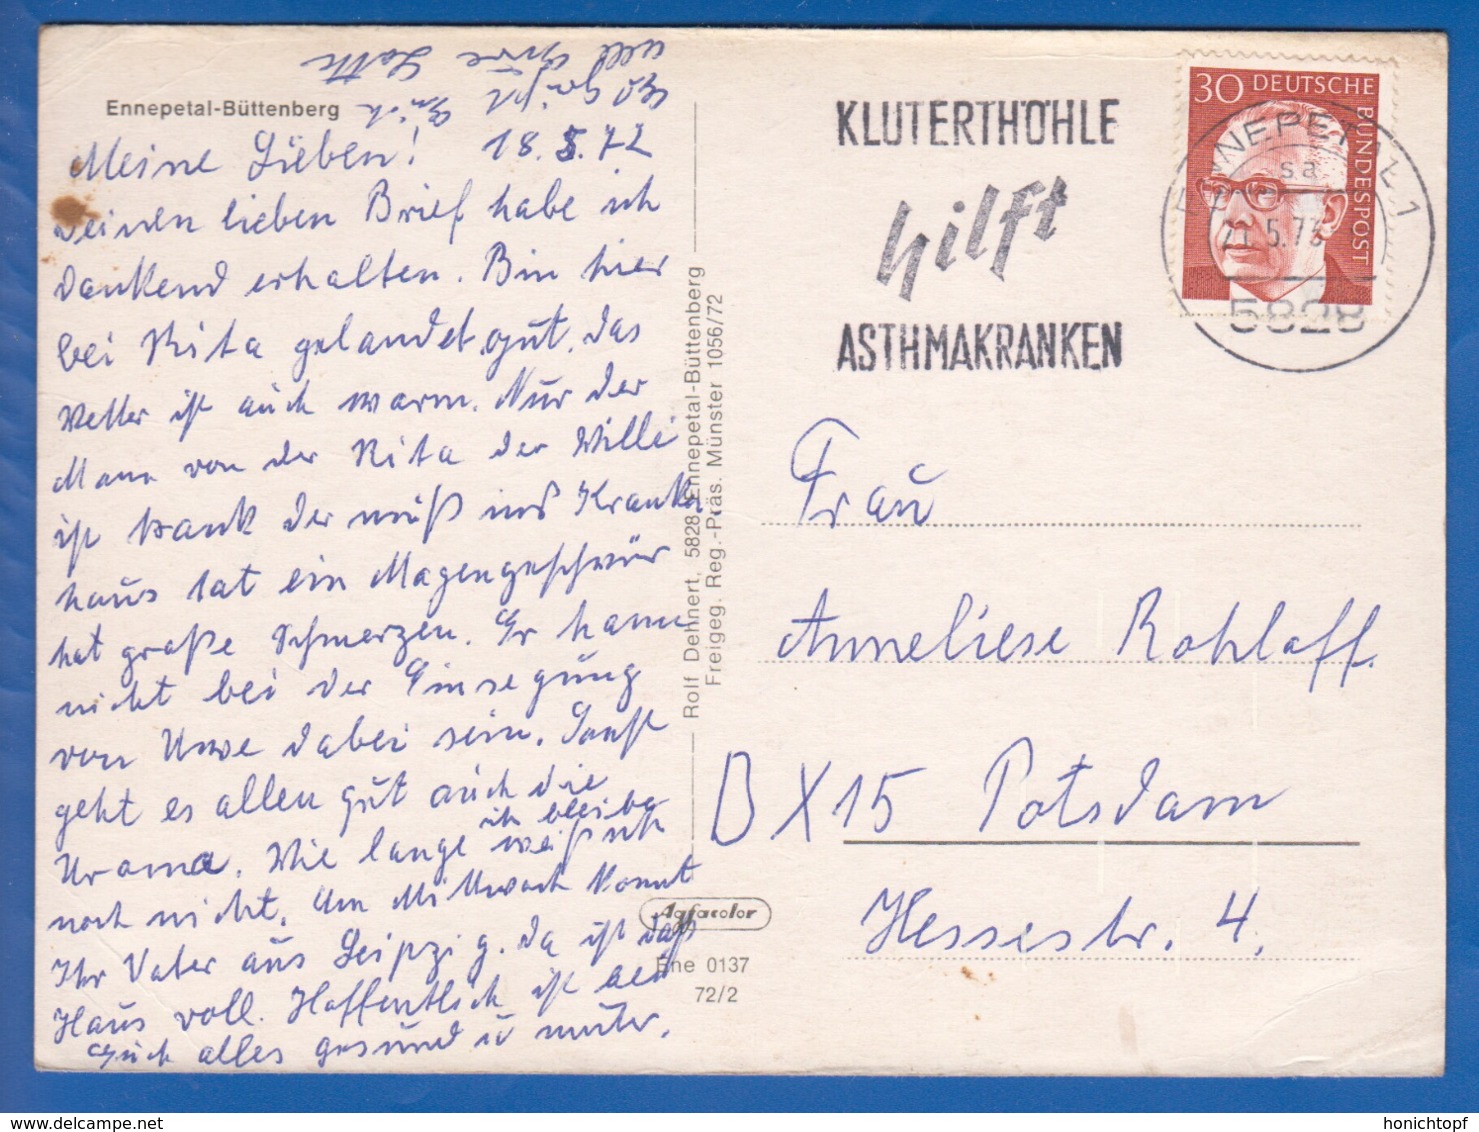 Ennepetal-Büttenberg
Meine Lieben! 18.5.72
Deinen lieben Brief habe ich
dankend erhalten. Bin hier
bei Rita gelandet gut, das
Wetter ist auch warm. Nur der
Mann von der Rita der Willi
ist krank der muß ins Kranken
haus hat ein Magengeschwür
hat große Schmerzen. Er kann
nicht bei der Einsegnung
von Uwe dabei sein. Sonst
geht es allen gut auch die
Uroma. Wie lange ich bleibe weiß ich
noch nicht. Am Mittwoch kommt
Ihr Vater aus Leipzig. Da ist das
Haus voll. Hoffentlich ist bei
Euch alles gesund u munter.
Es grüßt Euch
all Eure Lotte
Rolf Dehnert, 5828 Ennepetal-Büttenberg
Freigeg. Reg.-Präs. Münster 1056/72
Agfacolor
Ene 0137
72/2
KLUTERTHÖHLE
hilft
ASTHMAKRANKEN
30 DEUTSCHE
BUNDESPOST
ENNEPETAL 1
sa
21.5.73
5828
Frau
Anneliese Rohloff.
D X 15 Potsdam
Hessestr. 4.
honichtopf